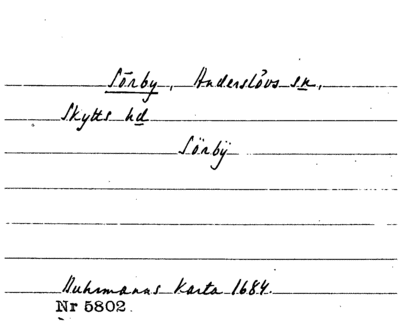 Sörby, Anderslövs sn,
Skytts hd
Sörbÿ
Buhrmanns Karta 1684.
Nr 5802